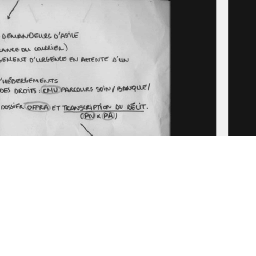 DEMANDEURS D'ASILE
DU COURRIER)
D'URGENCE EN ATTENTE D'UN
D'HÉBERGEMENTS
DES DROITS : CMU / PARCOURS SOIN / BANQUE /
DOSSIER OFPRA ET TRANSCRIPTION DU RÉCIT.
(PN x PA)